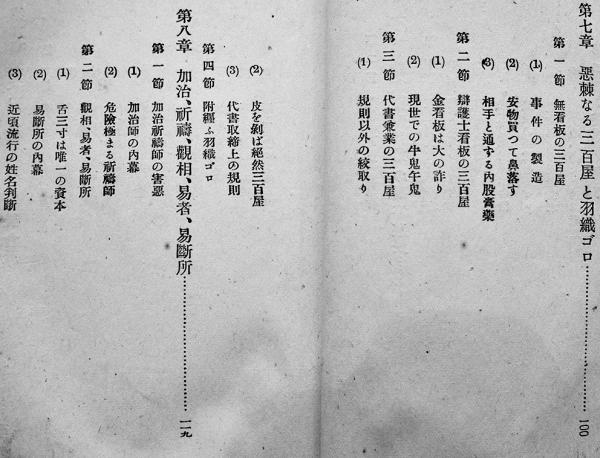 第七章 惡辣なる三百屋と羽織ゴロ……………………一〇〇
第一節 無看板の三百屋
(1) 事件の製造
(2) 安物買つて鼻落す
(3) 相手と通ずる內股膏藥
第二節 辯護士看板の三百屋
(1) 金看板は大の詐り
(2) 現世での牛鬼午鬼
第三節 代書兼業の三百屋
(1) 規則以外の絞取り
(2) 皮を剝ば純然三百屋
(3) 代書取締上の規則
第四節 附纒ふ羽織ゴロ
第八章 加治、祈禱、觀相、易者、易斷所……………………一一九
第一節 加治祈禱師の害惡
(1) 加治師の內幕
(2) 危險極まる祈禱師
第二節 觀相、易者、易斷所
(1) 舌三寸は唯一の資本
(2) 易斷所の內幕
(3) 近頃流行の姓名判斷